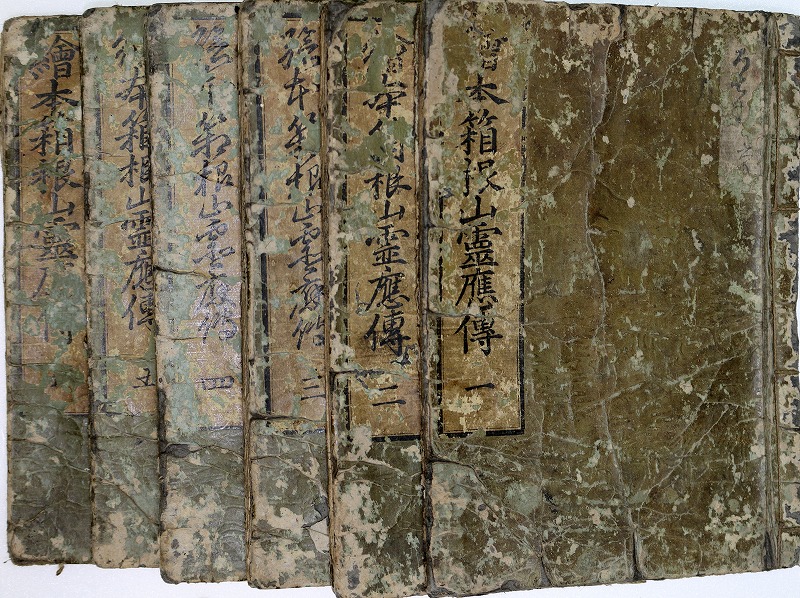 繪本箱根山靈應傳 一
繪本箱根山靈應傳 二
繪本箱根山靈應傳 三
繪本箱根山靈應傳 四
本箱根山靈應傳 五
繪本箱根山靈應